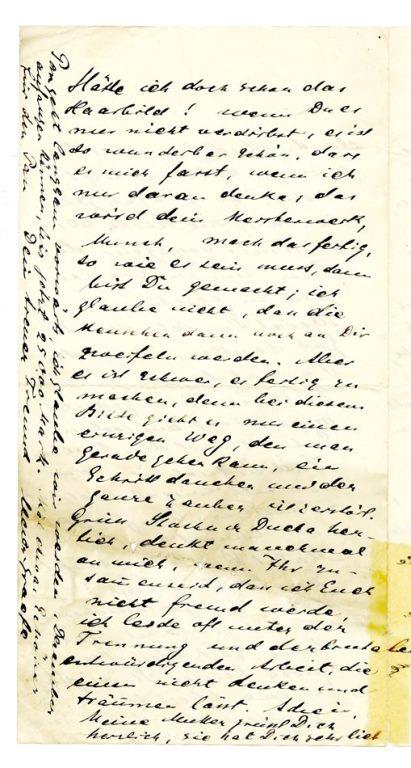 Hätte ich doch schon das
Haarbild! wenn Du es
nur nicht verdirbst, es ist
so wunderbar schön, dass
es mich fasst, wenn ich
nur daran denke, das
wird dein Meisterwerk,
Munch, mach das fertig,
so wie es sein muss, dann
bist Du gemacht; ich
glaube nicht, dass die
Menschen dann noch an Dir
zweifeln werden. Aber
es ist schwer, es fertig zu
machen, denn bei diesem
Bilde giebt es nur einen
einzigen Weg, den man
gerade gehen kann, ein
Schritt daneben und der
ganze Zauber ist zerstört.
Grüss Stachu u Ducha herz-
lich, denkt manchmal
an mich, wenn Ihr zu-
sam̄en seid, dass ich Euch
nicht fremd werde,
ich leide oft unter der
Trennung und der brutalen
entwürdigenden Arbeit, die
einen nicht denken und
träumen lässt. Adieu,
Meine Mutter grüsst Dich
herzlich, sie hat Dich sehr lieb
Pan geht langsam vorwärts, ich glaube wir werden Dezember
anfangen können, bis jetzt 25000 Mark.
für den Pan Dein treuer Freund Meier Graefe